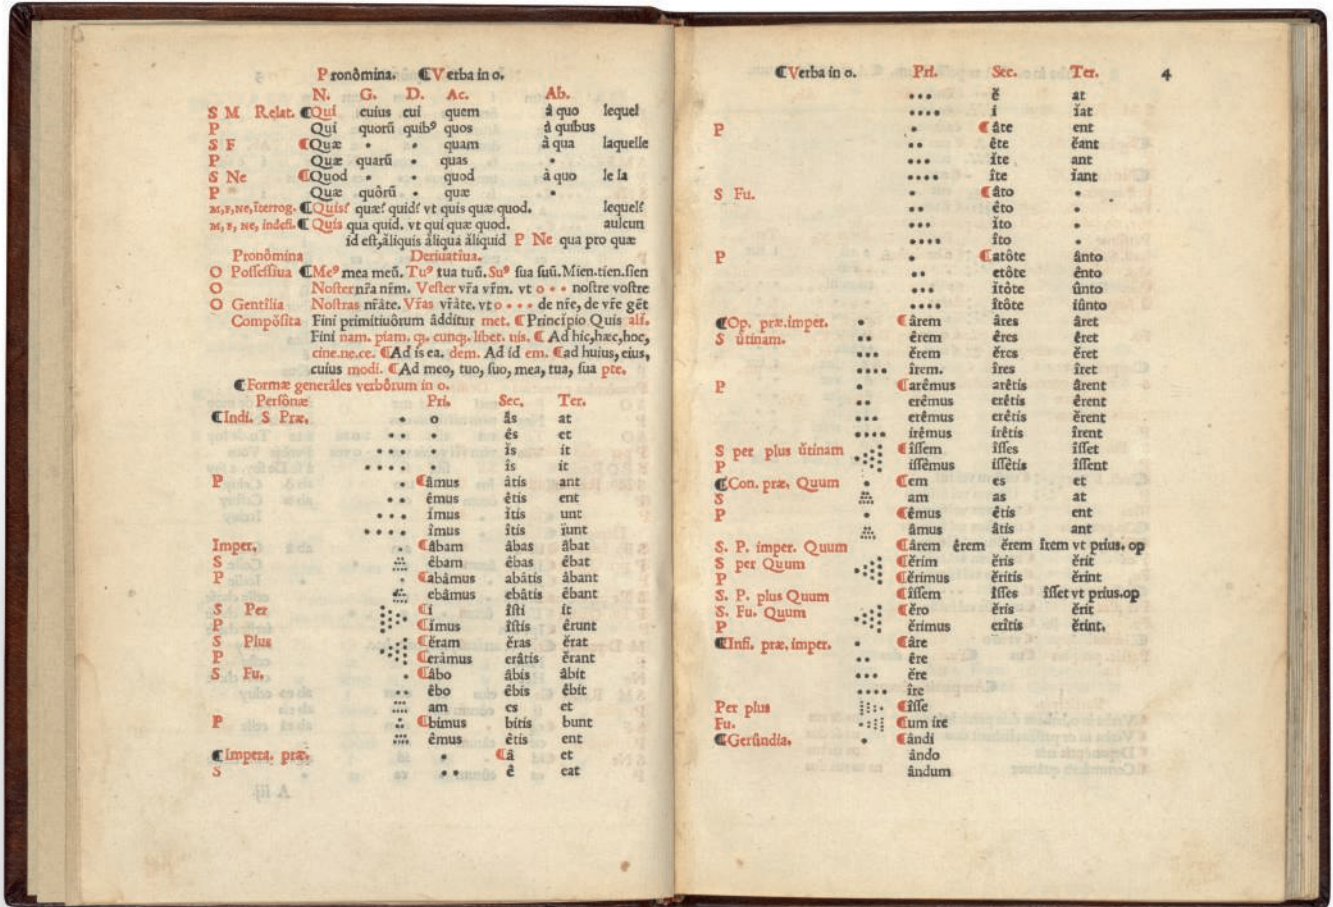 Pronômina. ⸿Verba in o.
N. G. D. Ac. Ab.
S M Relat. ⸿Qui cuius cui quem à quo lequel
P Qui quorū quibꝰ quos à quibus
S F ⸿Quæ • • quam à qua laquelle
P Quæ quarū • quas •
S Ne ⸿Quod • • quod à quo le la
P Quæ quôrū • quæ •
M,F,Ne,īterrog. ⸿Quis? quæ? quid? vt quis quæ quod. lequel?
M, F, Ne, indefi. ⸿Quis qua quid. vt qui quæ quod. aulcun
id est, ǎliquis ǎliqua ǎliquid P Ne qua pro quæ
Pronômina Deriuatiua.
O Possessiua ⸿Meꝰ mea meū. Tuꝰ tua tuū. Suꝰ sua suū. Mien.tien.sien
O Noster nr̄a nr̄m. Vester vr̄a vr̄m. vt o • • nostre vostre
O Gentîlia Nostras nr̄âte. Vr̄as vr̄âte. vt o • • • de nr̄e, de vr̄e gēt
Compǒsita Fini primitiuôrum âdditur met. ⸿Princîpio Quis ali.
Fini nam. piam. qꝫ. cunqꝫ. libet. uis. ⸿ Ad hic, hæc, hoc,
cine.ne.ce. ⸿Ad is ea. dem. Ad id em. ⸿ad huius, eius,
cuius modi. ⸿Ad meo, tuo, suo, mea, tua, sua pte.
⸿Formæ generâles verbôrum in o.
Persônæ Pri. Sec. Ter.
⸿Indi. S Præ. • o âs at
• • • ês et
• • • • ǐs it
• • • • • îs it
P • ⸿âmus âtis ant
• • êmus êtis ent
• • • ǐmus ǐtis unt
• • • • îmus îtis ǐunt
Imper. • ⸿âbam âbas âbat
S êbam êbas êbat
P • ⸿abâmus abâtis âbant
ebâmus ebâtis êbant
S Per ⸿i îsti it
P ⸿ǐmus îstis êrunt
S Plus ⸿ěram ěras ěrat
P ⸿erâmus erâtis ěrant
S Fu. • ⸿âbo âbis âbit
• • êbo êbis êbit
am es et
P ⸿bimus bitis bunt
êmus êtis ent
⸿Impera. præ. • ⸿â et
S • • ê eat
A iij.
⸿Verba in o. Pri. Sec. Ter. 4
• • • ě at
• • • • i ǐat
P • ⸿âte ent
• • ête ěant
• • • ǐte ant
• • • • îte ǐant
S Fu. • ⸿âto •
• • êto •
• • • ǐto •
• • • • îto •
P • ⸿atôte ânto
• • etôte ênto
• • • itôte ûnto
• • • • îtôte iûnto
⸿Op. præ.imper. • ⸿ârem âres âret
S ûtinam. • • êrem êres êret
• • • ěrem ěres ěret
• • • • îrem. îres îret
P • ⸿arêmus arêtis ârent
• • erêmus erêtis êrent
• • • erêmus erêtis ěrent
• • • • irêmus irêtis îrent
S per plus ûtinam ⸿îssem îsses îsset
P issêmus issêtis îssent
⸿Con. præ. Quum • ⸿em es et
S am as at
P • ⸿êmus êtis ent
âmus âtis ant
S. P. imper. Quum ⸿ârem êrem ěrem îrem vt prius. op
S per Quum ⸿ěrim ěris ěrit
P ⸿ěrimus erîtis ěrint
S. P. plus Quum ⸿îssem îsses îsset vt prius.op
S. Fu. Quum ⸿ěro ěris ěrit
P ěrimus erîtis ěrint.
⸿Infi. præ. imper. • ⸿âre
• • êre
• • • ěre
• • • • îre
Per plus ⸿îsse
Fu. ⸿um ire
⸿Gerûndia. • ⸿ândi
ândo
ândum